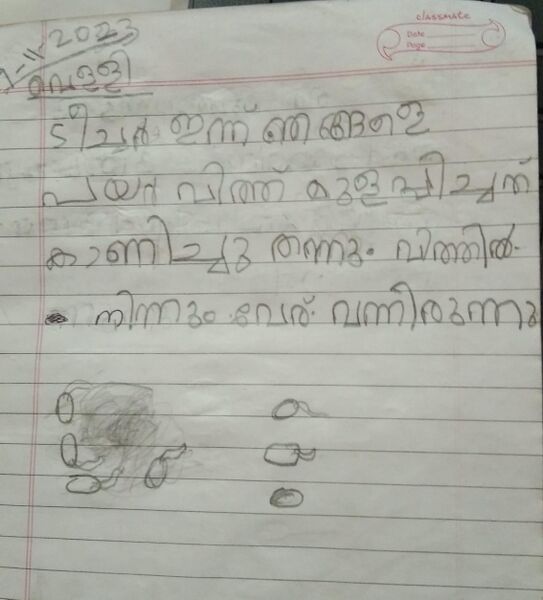 classmate
Date
Page
-11-2023
വെള്ളി
ടീച്ചർ ഇന്ന് ഞങ്ങളെ
പയർ വിത്ത് മുളപ്പിച്ചത്
കാണിച്ചു തന്നു. വിത്തിൽ
നിന്നും വേര് വന്നിരുന്നു